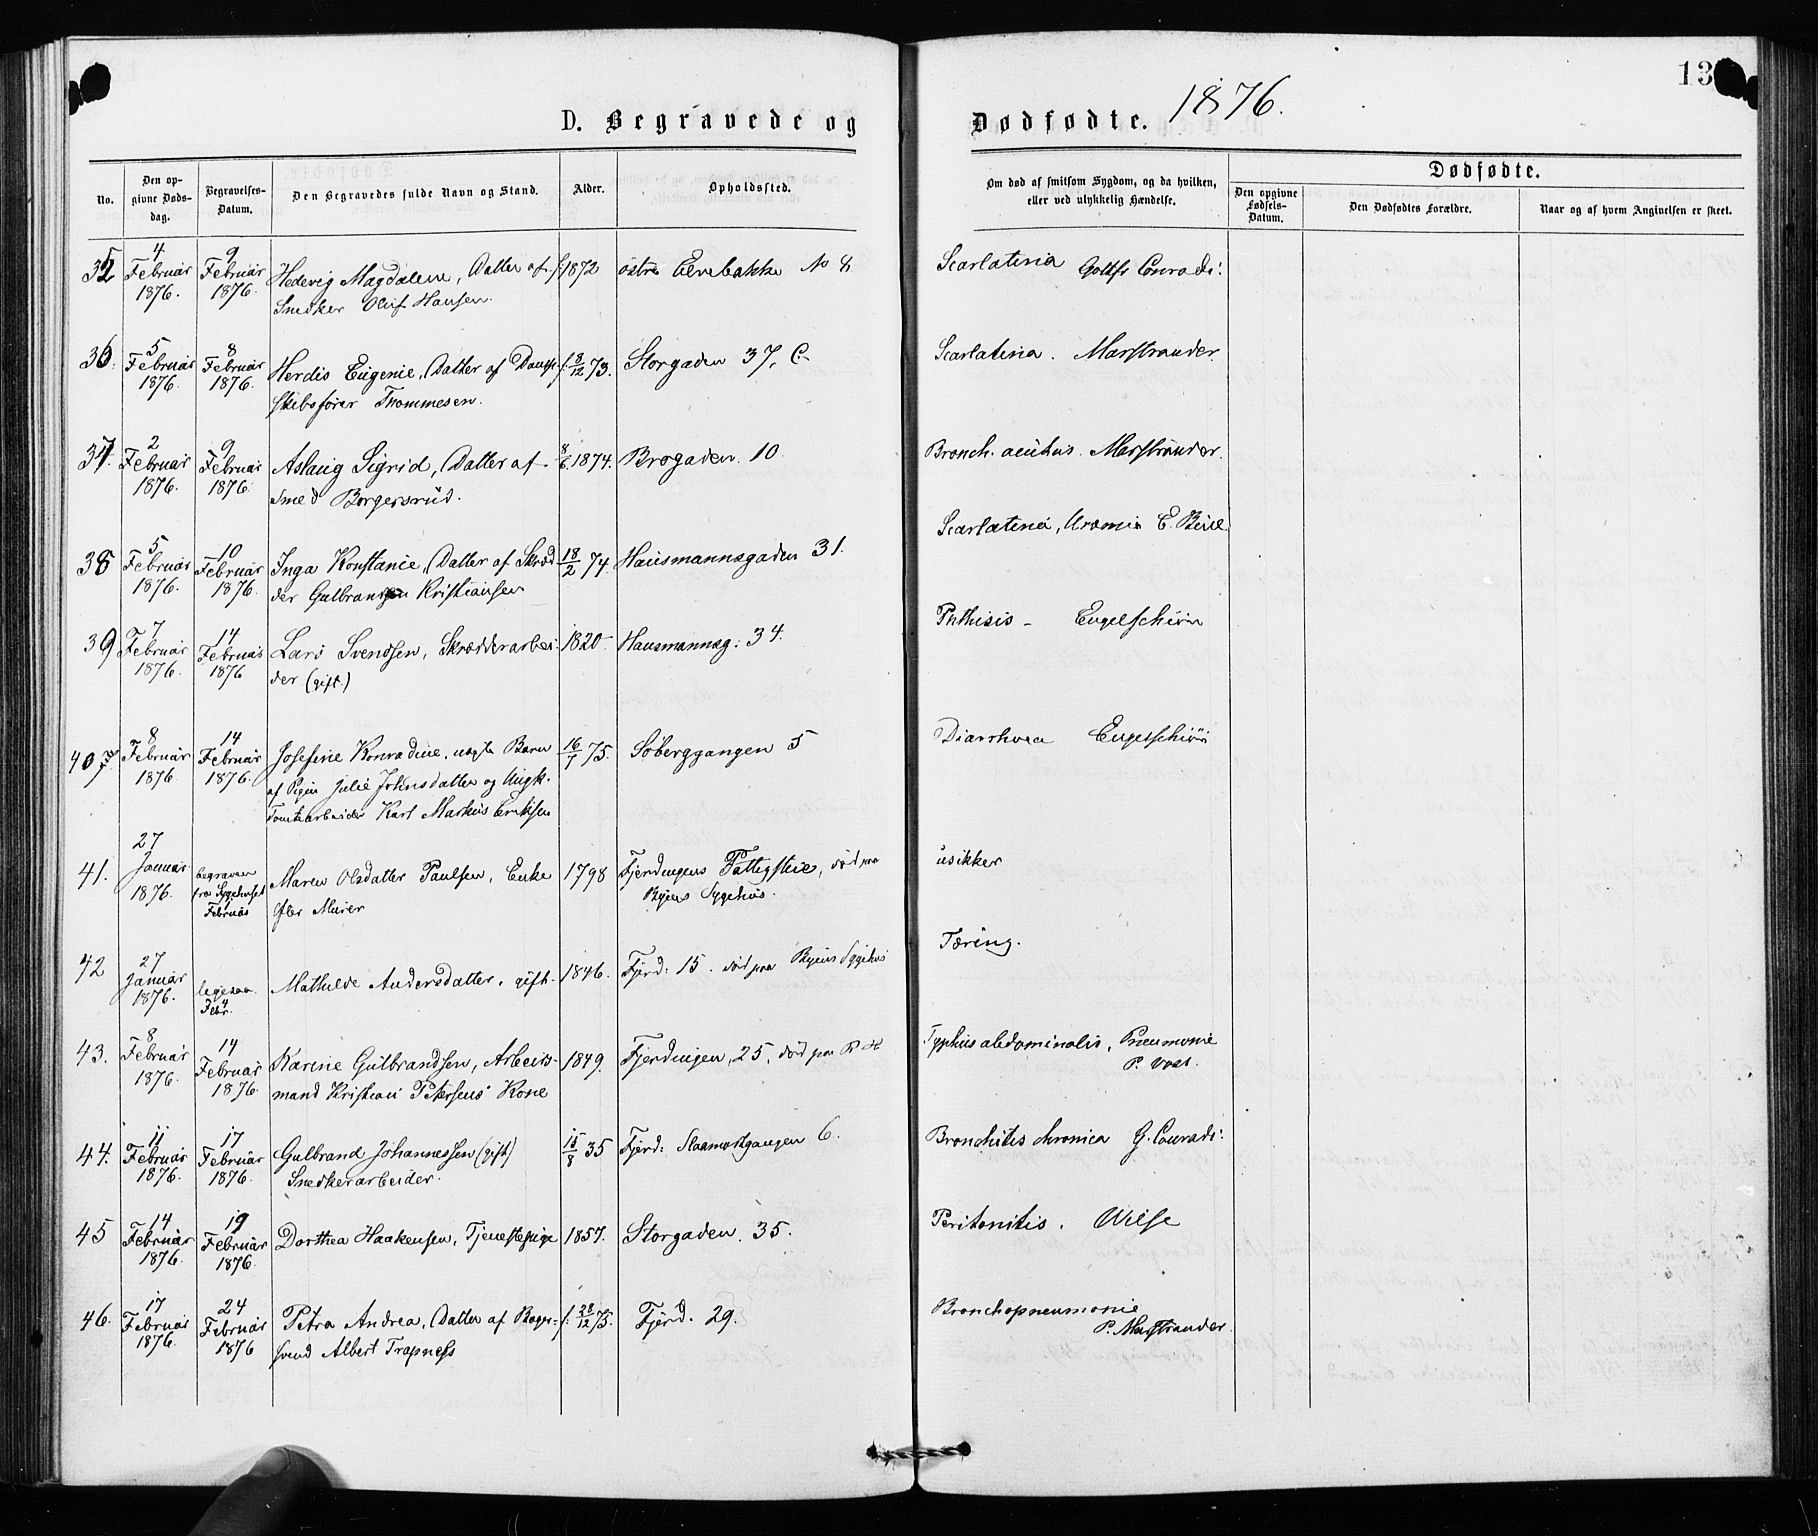 D. Begravede og
Dødfødte. 1876.
13
No.
Den opgivne Dødsdag.
Begravelses-Datum.
Den Begravedes fulde Navn og Stand.
Alder.
Opholdssted.
Om død af smitsom Sygdom, og da hvilken, eller ved ulykkelig Hændelse.
Dødfødte.
Den opgivne Fødsels-Datum.
Den Dødfødtes Forældre.
Naar og af hvem Angivelsen er skeet.
35 4 Februar 1876. 9 Februar 1876. Hedevig Magdalene, Datter af f. 1872 østre Elvebakke No 8 Scarlatina Gottfr Conradi:
Snedker Oluf Hansen.
36. 5 Februar 1876. 8 Februar 1876. Herdis Eugenie, Datter af Damp- f. 8/12 73. Storgaden 37, C. Scarlatina. Marstrander.
skibsfører Thommesen.
37. 2 Februar 1876. 9 Februar 1876. Aslaug Sigrid, Datter af 8/6 1874. Brogaden. 10 Bronch. acutus. Marstrander.
Smed Borgersrud.
38 5 Februar 1876. 10 Februar 1876. Inga Konstanie, Datter af Skræd 18/2 74. Hausmannsgaden 31. Scarlatina, Uræmia E. Bull
der Gulbransen Kristiansen
39 7 Februar 1876. 14 Februar 1876 Lars Svendsen, Skrædderarbei- 1820 Hausmannsg: 34. Phthisis - Engelschiøn
der (gift.)
40 8 Februar 1876. 14 Februar 1876. Josefine Konradine, uægte Barn 16/7 75. Søberggangen 5 Diarrhoea Engelschiøn
af Pigen Julie Johnsdatter og Ungk.
Tomtearbeider Karl Markus Eriksen
41. 27 Januar 1876. begraven fra Sygehuset Februar Maren Olsdatter Paulsen, Enke 1798 Fjerdingens Fattigstue, død paa usikker
efter Murer Byens Sygehus.
42 27 Januar 1876. ligesaa 4 Febr. Mathilde Andersdatter, gift. 1846. Fjerd: 15. død paa Byens Sygehus Tæring.
43. 8 Februar 1876. 14 Februar 1876. Karine Gulbrandsen, Arbeids- 1849. Fjerdingen, 25, død paa R. H Typhus abdominalis, Pneumonie
mand Kristian Petersens Kone P. Voss.
44. 11 Februar 1876. 17 Februar 1876. Gulbrand Johannessen (gift) 15/8 35 Fjerd: Slaamotgangen 6. Bronchitis chronica G. Conradi:
Snedkerarbeider.
45 14 Februar 1876. 19 Februar 1876. Dorthea Haakensen, Tjenestepige 1857. Storgaden. 35. Peritonitis. Wilse
46. 17 Februar 1876. 24 Februar 1876 Petra Andrea, Datter af Bager- f. 28/12 75. Fjerd. 29. Bronchopneumonie
svend Albert Trapness P. Marstrander.